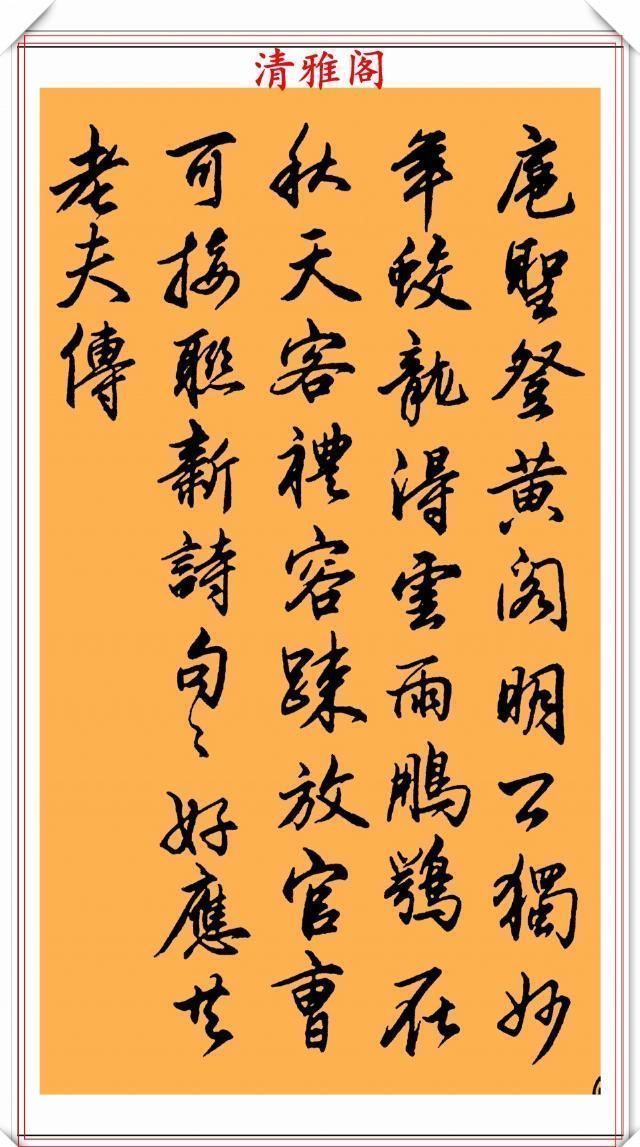 清雅阁
扈聖登黄阁明公獨妙
年蛟龍得雲雨鵰鶚在
秋天客禮容踈放官曹
可接聯新詩句〻好應共
老夫傳